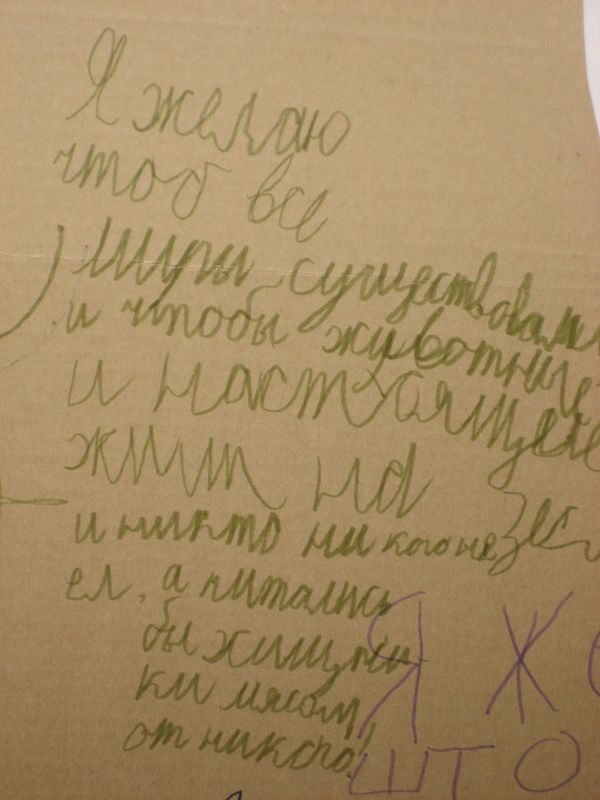 Я желаю
чтоб все
миры существовали
и чтобы животные
и настоящее
жили на зе
и никто никого не
ел, а питались
бы хищни
ки мясом
от никого!
Я Же
што